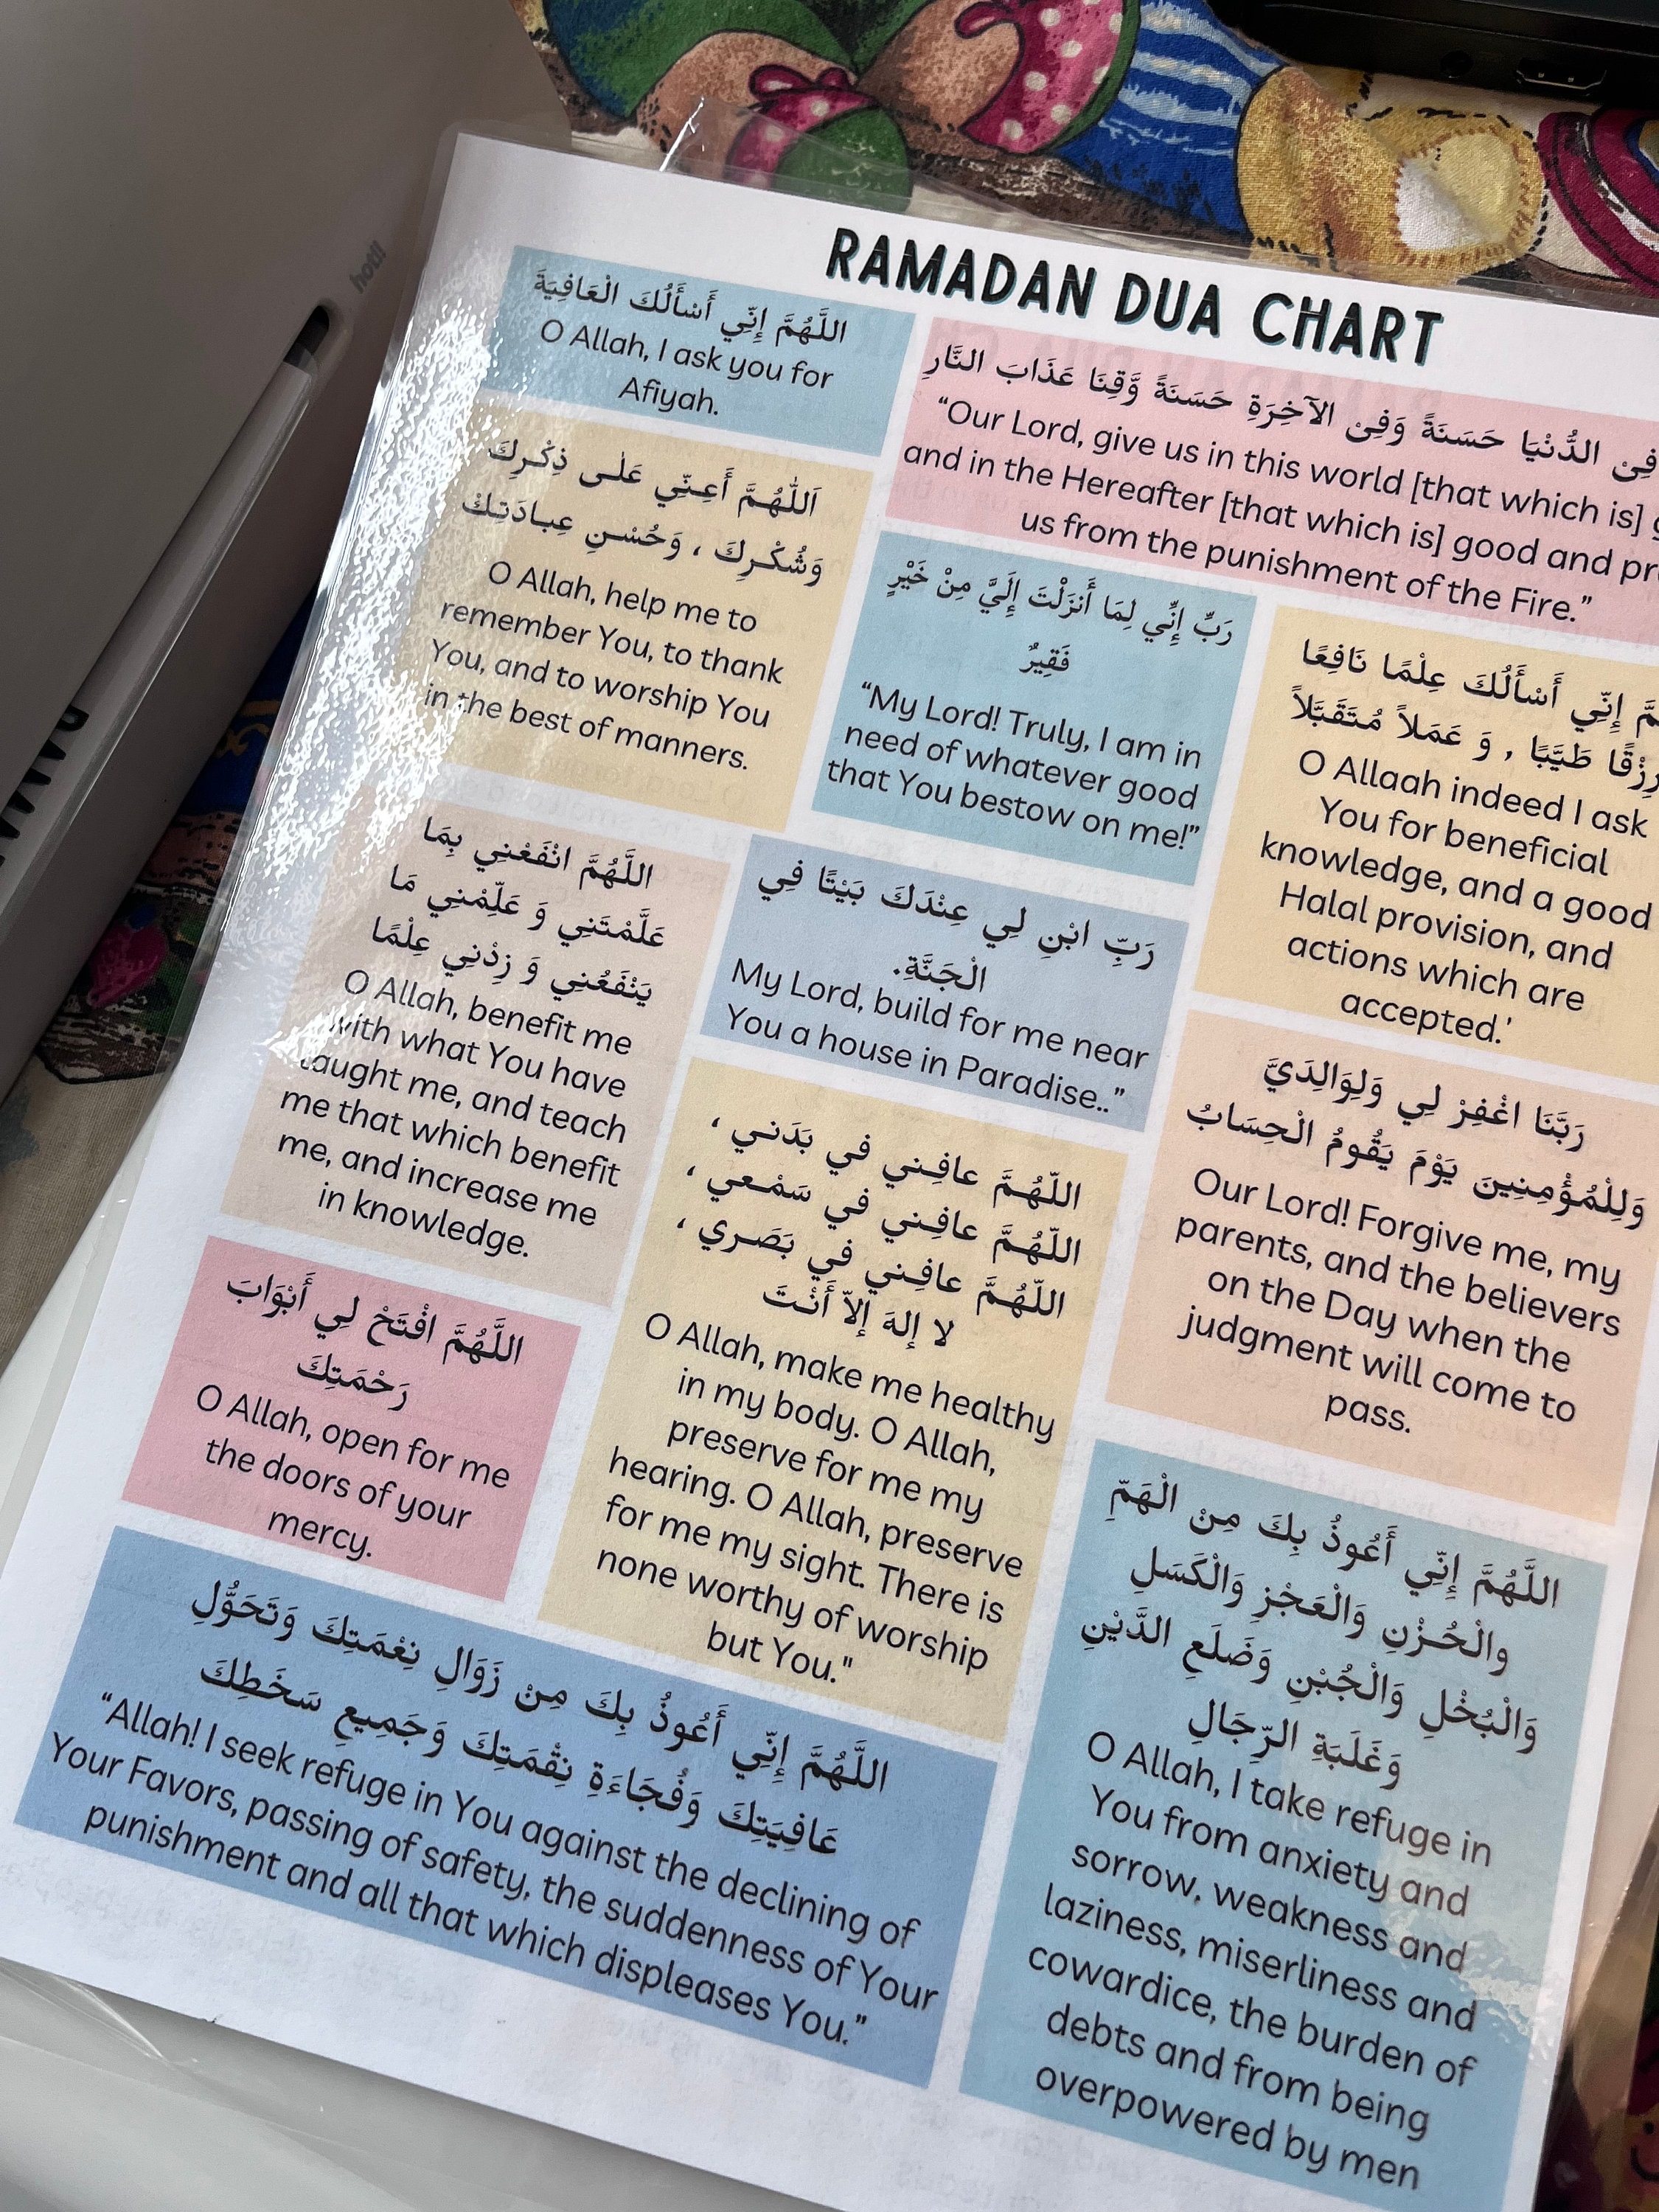 hot!
RAMADAN DUA CHART
اللَّهُمَّ إِنِّي أَسْأَلُكَ الْعَافِيَةَ
O Allah, I ask you for
Afiyah.
فِىْ الدُّنْيَا حَسَنَةً وَفِىْ الآخِرَةِ حَسَنَةً وَّقِنَا عَذَابَ النَّارِ
“Our Lord, give us in this world [that which is]
and in the Hereafter [that which is] good and
us from the punishment of the Fire.”
اَللّٰهُمَّ أَعِنّي عَلٰى ذِكْرِكَ
وَشُكْرِكَ ، وَحُسْنِ عِبادَتِكْ
O Allah, help me to
remember You, to thank
You, and to worship You
in the best of manners.
رَبِّ إِنِّي لِمَا أَنزَلْتَ إِلَيَّ مِنْ خَيْرٍ
فَقِيرٌ
“My Lord! Truly, I am in
need of whatever good
that You bestow on me!”
إِنِّي أَسْأَلُكَ عِلْمًا نَافِعًا
رِزْقًا طَيِّبًا , وَ عَمَلاً مُتَقَبَّلاً
O Allaah indeed I ask
You for beneficial
knowledge, and a good
Halal provision, and
actions which are
accepted.’
اللَّهُمَّ انْفَعْنِي بِمَا
عَلَّمْتَنِي وَ عَلِّمْنِي مَا
يَنْفَعُنِي وَ زِدْنِي عِلْمًا
O Allah, benefit me
with what You have
taught me, and teach
me that which benefit
me, and increase me
in knowledge.
رَبِّ ابْنِ لِي عِنْدَكَ بَيْتًا فِي
الْجَنَّةِ.
My Lord, build for me near
You a house in Paradise..”
رَبَّنَا اغْفِرْ لِي وَلِوَالِدَيَّ
وَلِلْمُؤْمِنِينَ يَوْمَ يَقُومُ الْحِسَابُ
Our Lord! Forgive me, my
parents, and the believers
on the Day when the
judgment will come to
pass.
اللّهُمَّ عافِني في بَدَني ،
اللّهُمَّ عافِني في سَمْعي ،
اللّهُمَّ عافِني في بَصَري ،
لا إلهَ إلاّ أَنْتَ
O Allah, make me healthy
in my body. O Allah,
preserve for me my
hearing. O Allah, preserve
for me my sight. There is
none worthy of worship
but You."
اللَّهُمَّ افْتَحْ لِي أَبْوَابَ
رَحْمَتِكَ
O Allah, open for me
the doors of your
mercy.
اللَّهُمَّ إِنِّي أَعُوذُ بِكَ مِنْ الْهَمِّ
والْحُزْنِ وَالْعَجْزِ وَالْكَسَلِ
وَالْبُخْلِ وَالْجُبْنِ وَضَلَعِ الدَّيْنِ
وَغَلَبَةِ الرِّجَالِ
O Allah, I take refuge in
You from anxiety and
sorrow, weakness and
laziness, miserliness and
cowardice, the burden of
debts and from being
overpowered by men
اللَّهُمَّ إِنِّي أَعُوذُ بِكَ مِنْ زَوَالِ نِعْمَتِكَ وَتَحَوُّلِ
عَافِيَتِكَ وَفُجَاءَةِ نِقْمَتِكَ وَجَمِيعِ سَخَطِكَ
“Allah! I seek refuge in You against the declining of
Your Favors, passing of safety, the suddenness of Your
punishment and all that which displeases You.”